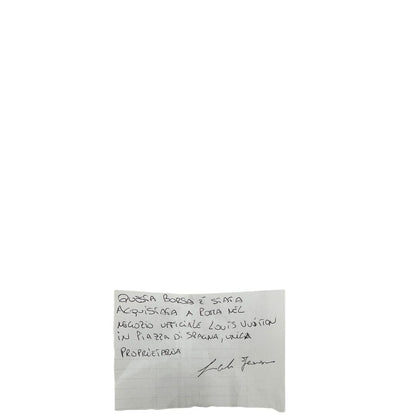 QUESTA BORSA È STATA
ACQUISTATA A ROMA NEL
NEGOZIO UFFICIALE LOUIS VUITTON
IN PIAZZA DI SPAGNA, UNICA
PROPRIETARIA